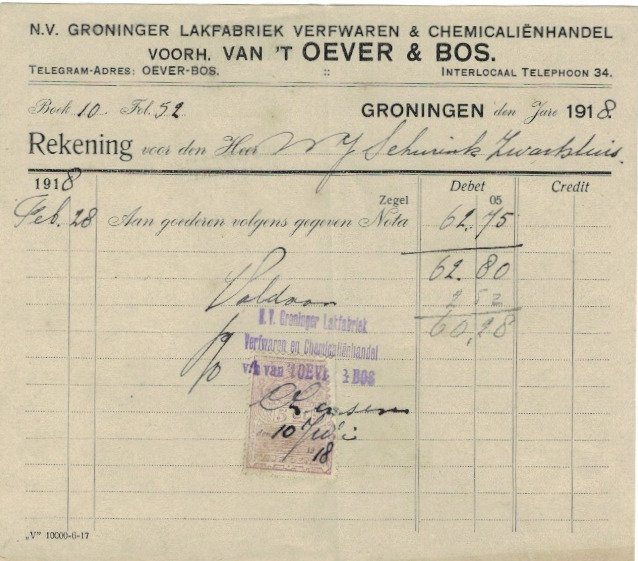 N.V. GRONINGER LAKFABRIEK VERFWAREN & CHEMICALIËNHANDEL
VOORH. VAN 'T OEVER & BOS.
TELEGRAM-ADRES: OEVER-BOS. :: INTERLOCAAL TELEPHOON 34.
Boek 10 Fol. 52 GRONINGEN den Jare 1918.
Rekening voor den Heer W J Schurink Zwartsluis.
1918 Debet Credit
Zegel 05
Feb. 28 Aan goederen volgens gegeven Nota 62.75
62.80
Voldaan 2 52
60,28
N.V. Groninger Lakfabriek
p/o Verfwaren en Chemicaliënhandel
v/h van 'T OEVER & BOS
10 Juli
1918
„V" 10000-6-17